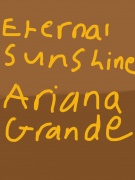 Eternal
Sunshine
Ariana
Grande